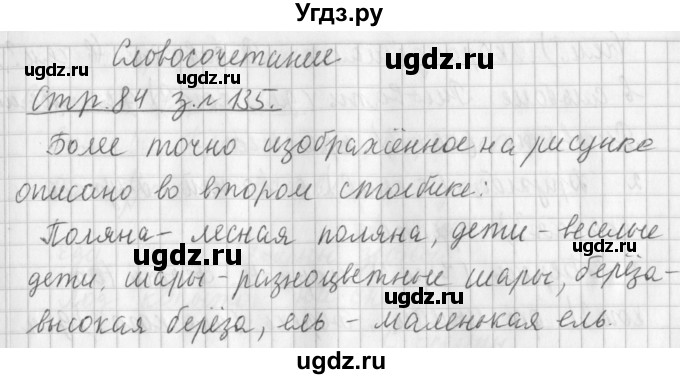 Угдз.ру
Словосочетание
Стр. 84 з. № 135.
Более точно изображённое на рисунке
описано во втором столбике:
Поляна – лесная поляна, дети – веселые
дети, шары – разноцветные шары, берёза –
высокая берёза, ель – маленькая ель.
ugdz.ru
ugdz.ru
ugdz.ru
ugdz.ru
ugdz.ru
ugdz.ru
ugdz.ru
ugdz.ru
ugdz.ru